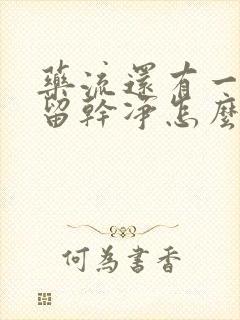 藥流還有一
留幹凈怎麼
何為書香